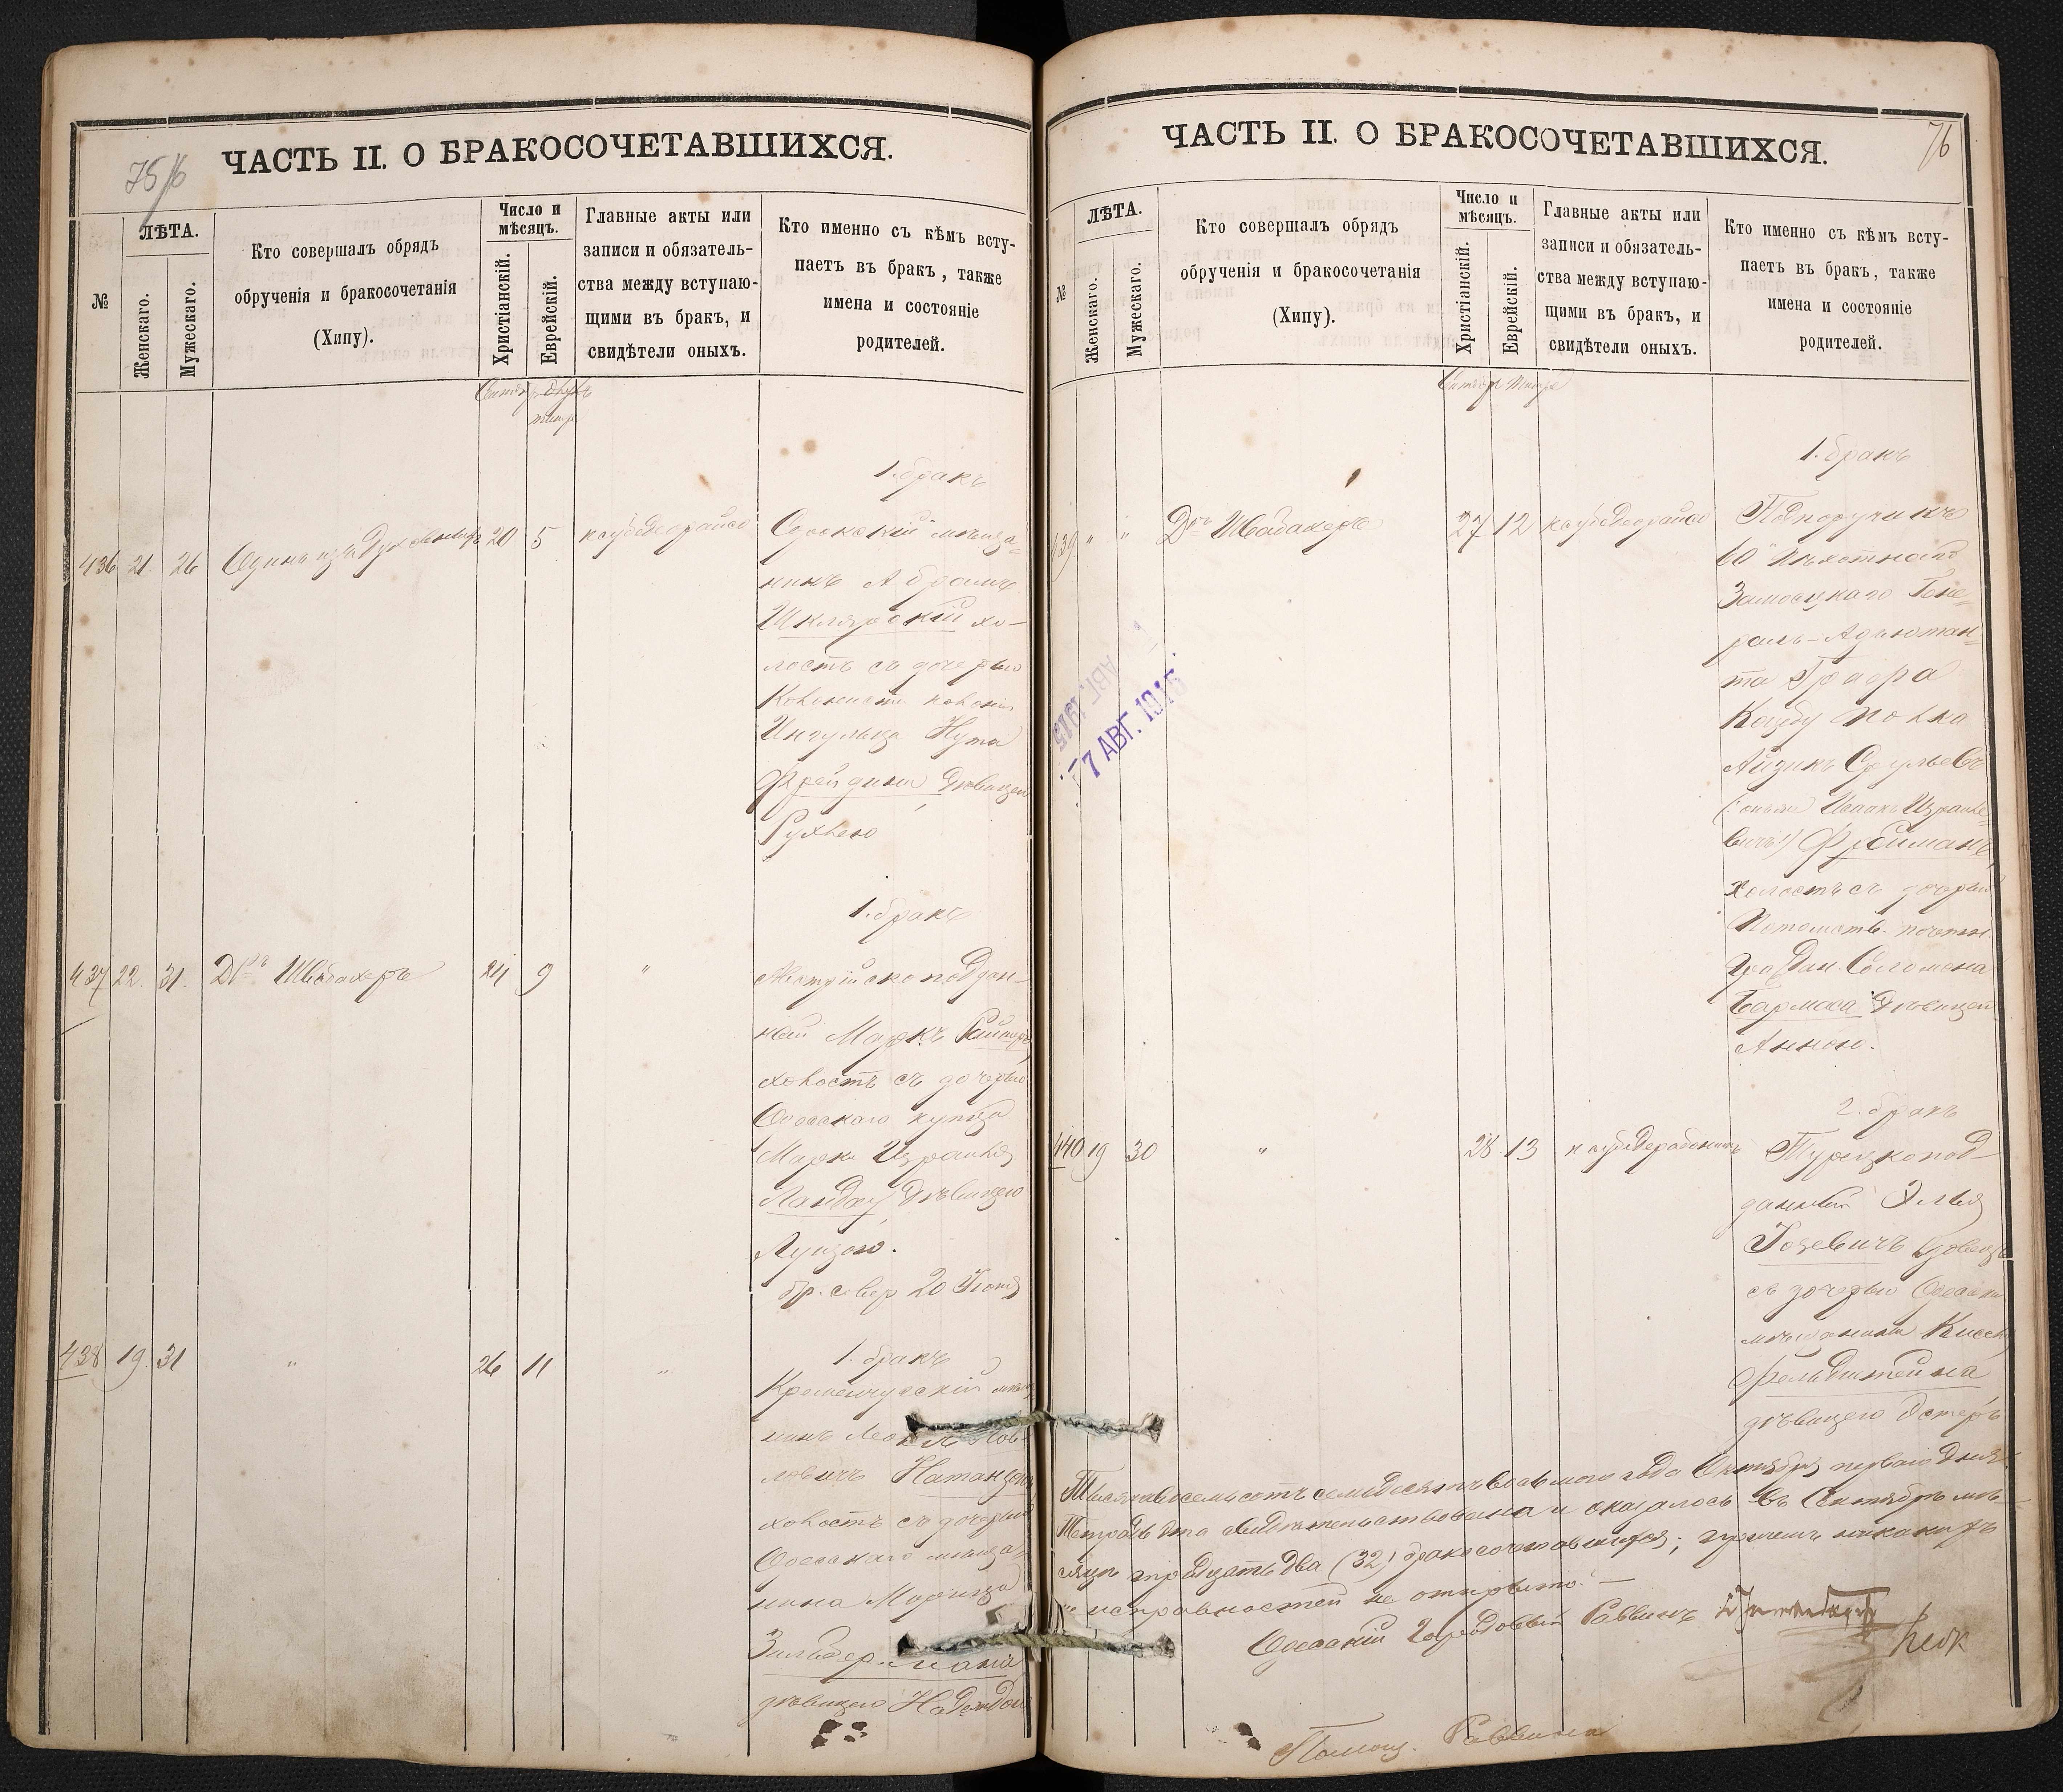 ЧАСТЬ II. О БРАКОСОЧЕТАВШИХСЯ.
№
ЛѢТА.
Женскаго.
Мужескаго.
Кто совершалъ обрядъ
обрученія и бракосочетанія
(Хипу).
Число и
мѣсяцъ.
Христіанскій.
Еврейскій.
Главные акты или
записи и обязатель-
ства между вступаю-
щими въ бракъ, и
свидѣтели оныхъ.
Кто именно съ кѣмъ всту-
паетъ въ бракъ, также
имена и состояніе
родителей.
1. бракъ
436 21. 26 Одинъ изъ 20 5
Одесскій мѣща-
нинъ Абрамъ
Шклярскій хо-
лостъ съ дочерью
Колониста колоніи
Ингульца Нута
Фрейдина дѣвицею
Рухлею
1. бракъ
437 22. 31. Д-ръ Швабахеръ 24 9 "
Австрійскоподдан-
ный Маркъ
холостъ съ дочерью
Одесскаго купца
Марка Израиля
Ландау дѣвицею
Луизою.
бр. совер 20 Іюня
1. бракъ
438 19. 31 " 26 11 "
Кременчугскій мѣща
нинъ
Натанзонъ
холостъ съ дочерью
Одесскаго мѣща-
нина Морица
Зильбермана
дѣвицею Надеждою
ЧАСТЬ II. О БРАКОСОЧЕТАВШИХСЯ.
76
№
ЛѢТА.
Женскаго.
Мужескаго.
Кто совершалъ обрядъ
обрученія и бракосочетанія
(Хипу).
Число и
мѣсяцъ.
Христіанскій.
Еврейскій.
Главные акты или
записи и обязатель-
ства между вступаю-
щими въ бракъ, и
свидѣтели оныхъ.
Кто именно съ кѣмъ всту-
паетъ въ бракъ, также
имена и состояніе
родителей.
1. бракъ
439 " " Д-ръ Швабахеръ 27 12
Подпоручикъ
60 Пѣхотнаго
Замосцкаго Гене-
ралъ-Адъютан-
та Графа
Коцебу полка
Айзикъ Срульевъ
(: онъ же Исаакъ Израиле-
вичъ :) Фрейманъ,
холостъ съ дочерью
Потомств. почетн.
Граждан. Соломона
Бармаса дѣвицей
Анною.
7 АВГ. 1915
2. бракъ
440 19 30 " 28 13
Турецкопод-
данный Элья
Іозевичъ вдовецъ
съ дочерью Одесск
мѣщанина
Фельдштейна
дѣвицею Эстеръ
Тысяча восемьсотъ семьдесятъ восьмого года Октября перваго дня
Тетрадь эта свидѣтельствована и оказалось въ Сентябрѣ мѣ-
сяцѣ тридцать два (32) бракосочетавшихся; причемъ никакихъ
неисправностей не открыто.
Одесскій Городовой Раввинъ
Помощ. Раввина